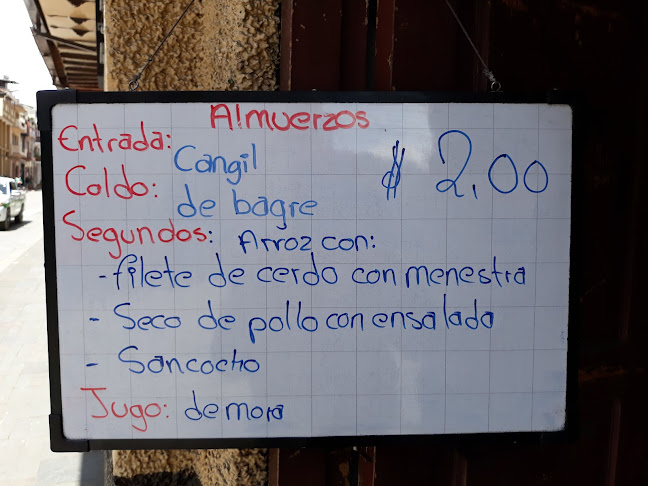 Almuerzos
Entrada: Cangil $ 2,00
Caldo: de bagre
Segundos: Arroz con:
- filete de cerdo con menestra
- Seco de pollo con ensalada
- Sancocho
Jugo: de mora